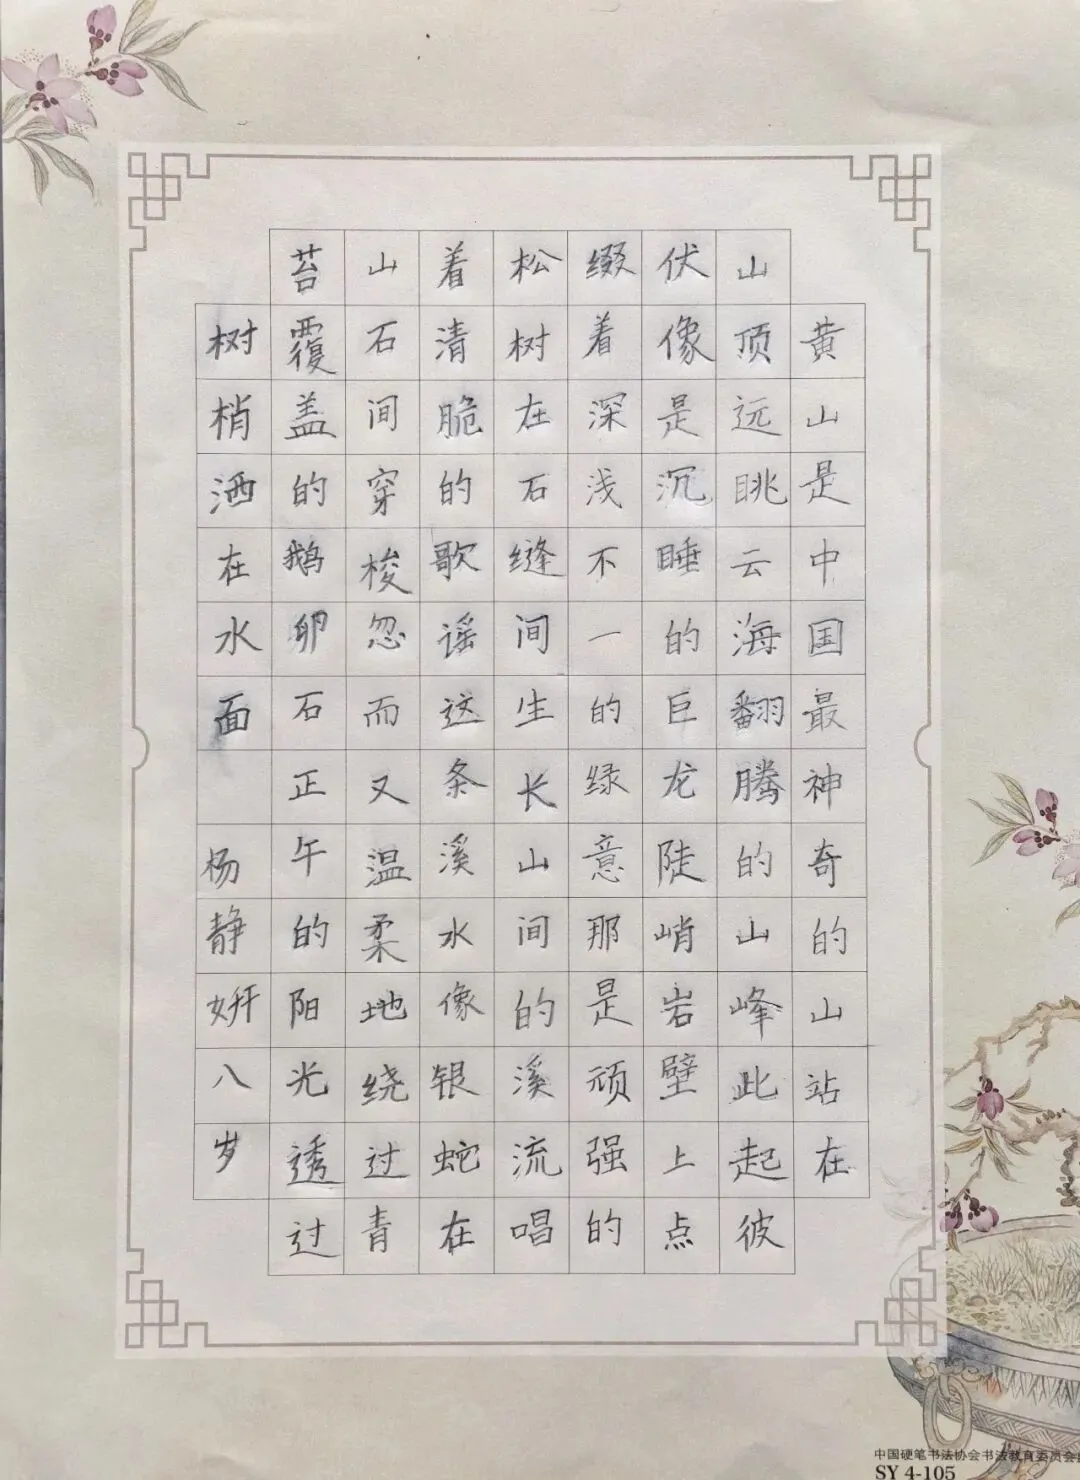 黄山是中国最神奇的山站在
山顶远眺云海翻腾的山峰此起彼
伏像是沉睡的巨龙陡峭岩壁上点
缀着深浅不一的绿意那是顽强的
松树在石缝间生长山间的溪流唱
着清脆的歌谣这条溪水像银蛇在
山石间穿梭忽而又温柔地绕过青
苔覆盖的鹅卵石正午的阳光透过
树梢洒在水面 杨静妍八岁
中国硬笔书法协会书法教育委员会
SY 4-105